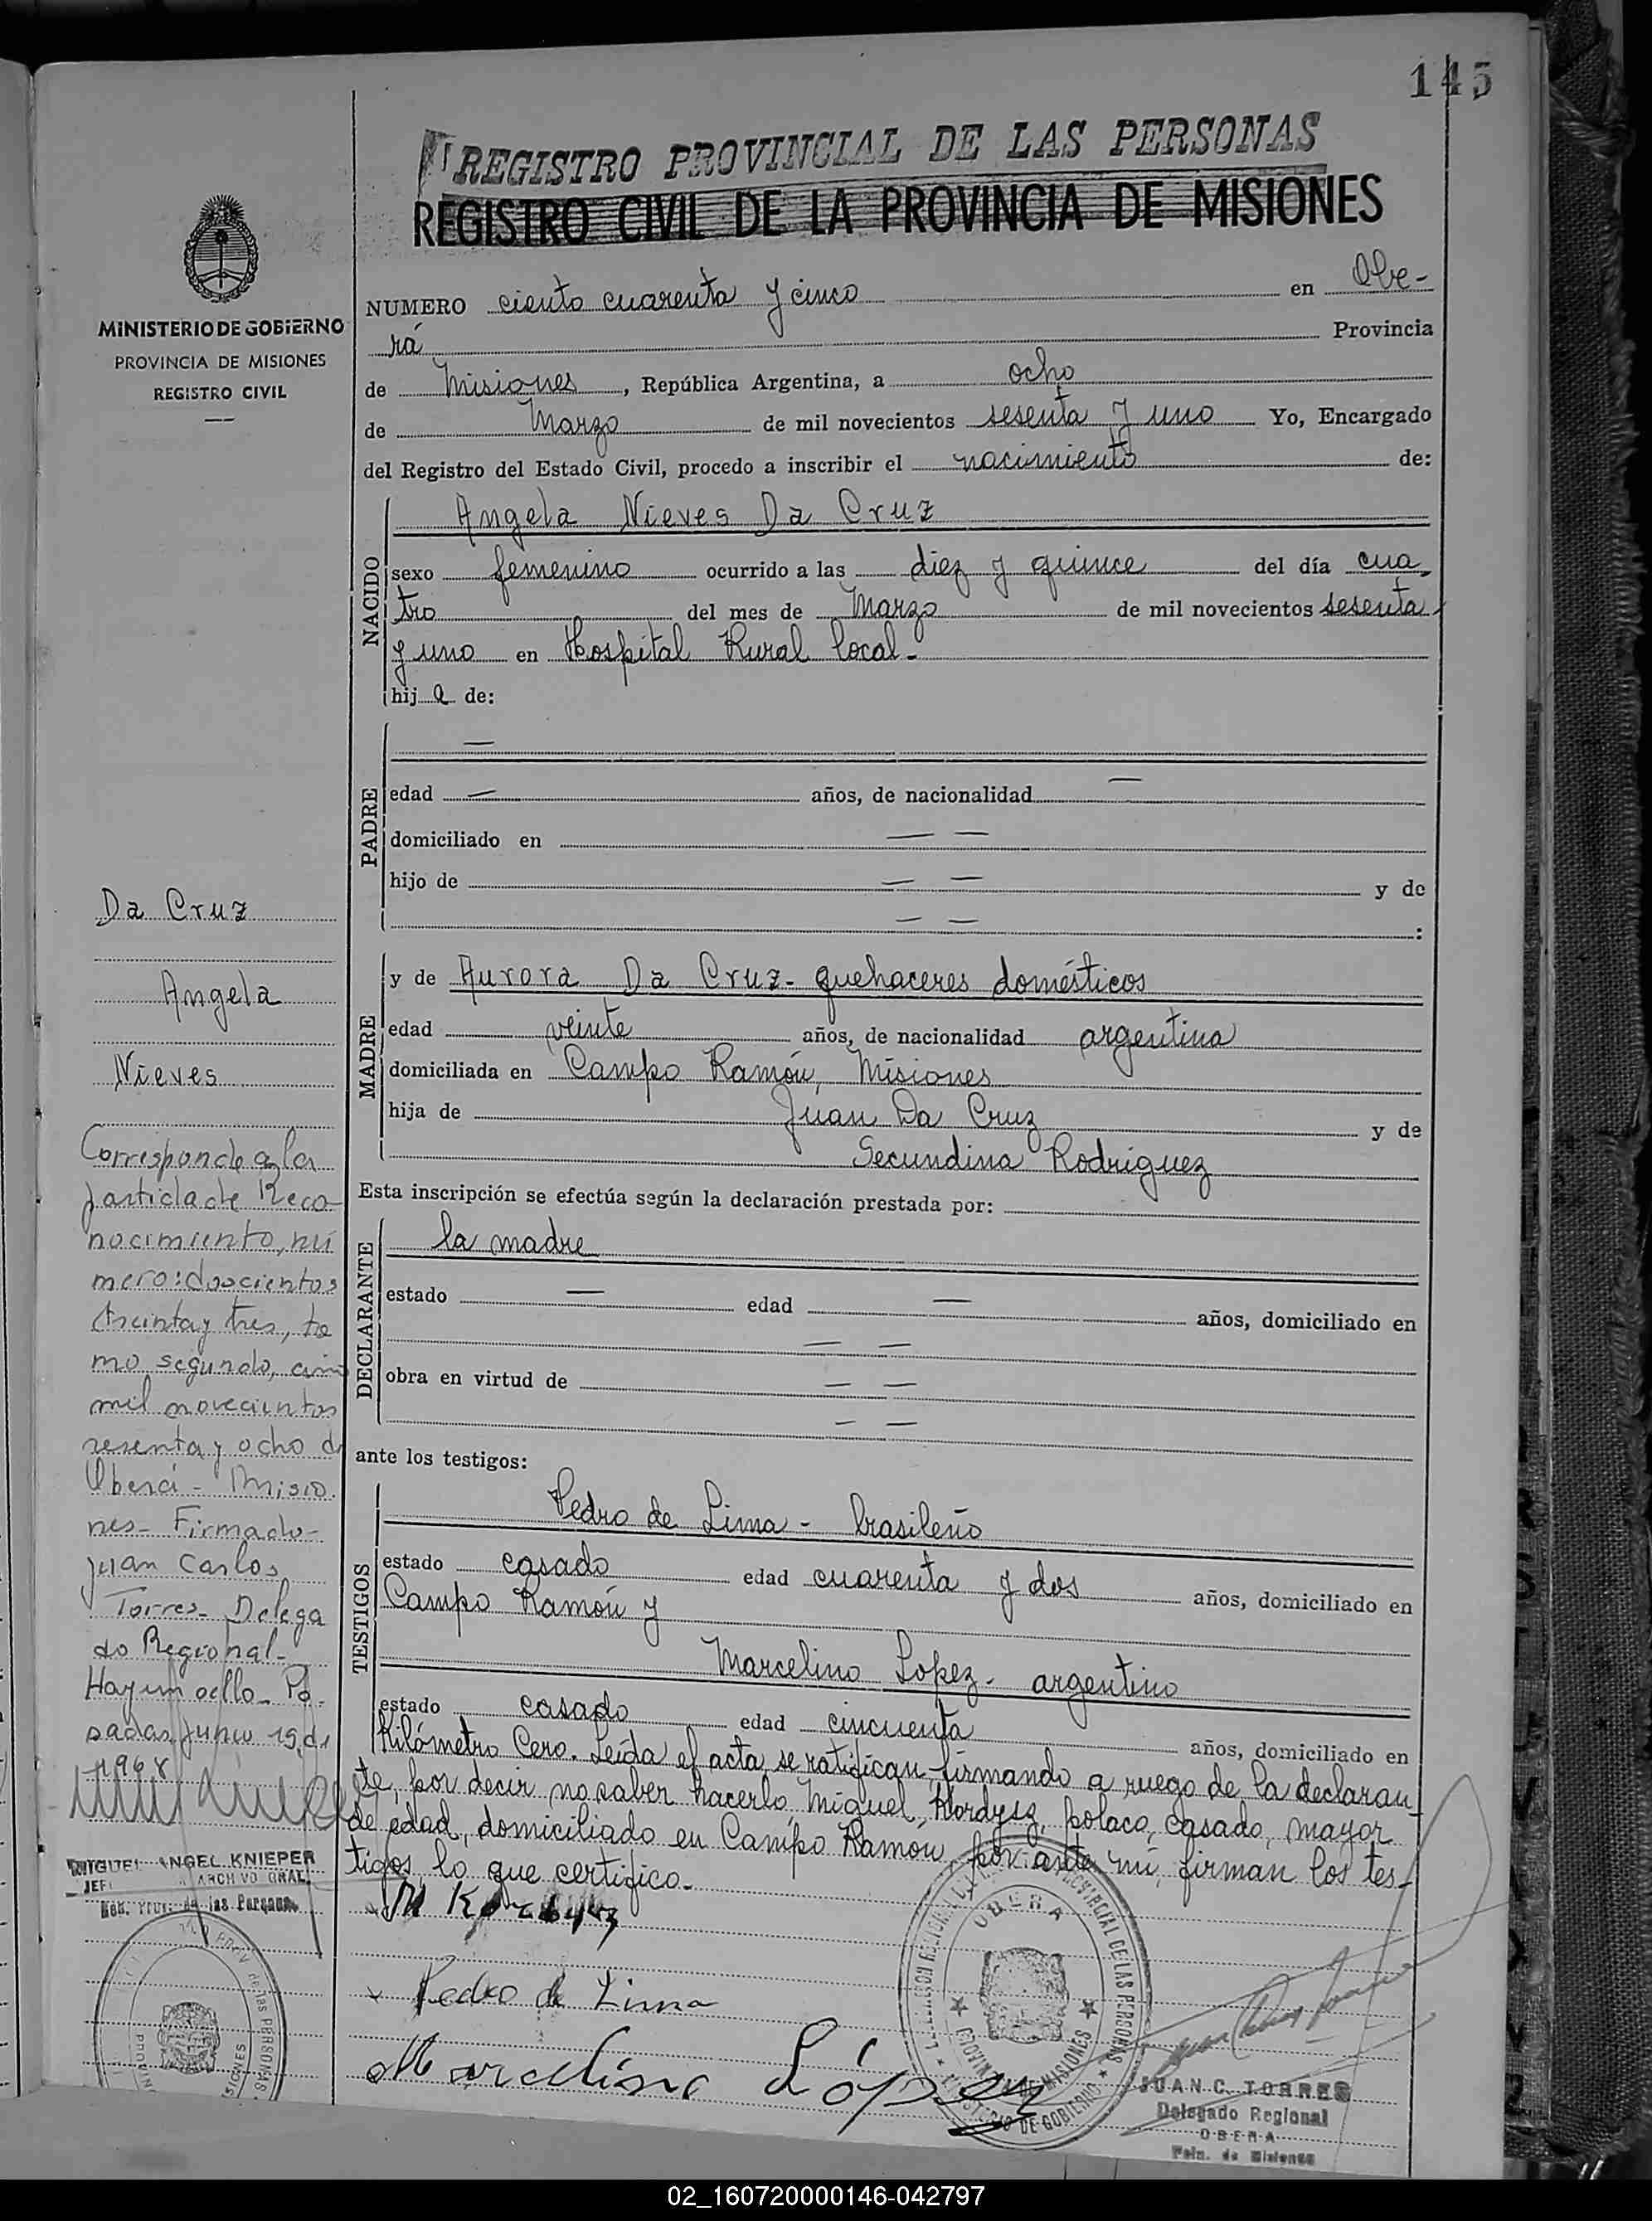 145
REGISTRO PROVINCIAL DE LAS PERSONAS
REGISTRO CIVIL DE LA PROVINCIA DE MISIONES
MINISTERIO DE GOBIERNO
PROVINCIA DE MISIONES
REGISTRO CIVIL
NUMERO ciento cuarenta y cinco en Obe-
rá Provincia
de Misiones, República Argentina, a ocho
de Marzo de mil novecientos sesenta y uno Yo, Encargado
del Registro del Estado Civil, procedo a inscribir el nacimiento de:
NACIDO
Angela Nieves Da Cruz
sexo femenino ocurrido a las diez y quince del día cua-
tro del mes de Marzo de mil novecientos sesenta
y uno en Hospital Rural local.-
hij a de:
PADRE
—
edad — años, de nacionalidad —
domiciliado en — —
hijo de — — y de
— — :
MADRE
y de Aurora Da Cruz- quehaceres domésticos
edad veinte años, de nacionalidad argentina
domiciliada en Campo Ramón, Misiones
hija de Juan Da Cruz y de
Secundina Rodriguez
Esta inscripción se efectúa según la declaración prestada por:
DECLARANTE
la madre
estado — edad — años, domiciliado en
— —
obra en virtud de — —
— —
ante los testigos:
TESTIGOS
Pedro de Lima - brasileño
estado casado edad cuarenta y dos años, domiciliado en
Campo Ramón y
Marcelino Lopez- argentino
estado casado edad cincuenta años, domiciliado en
Kilómetro Cero. Leída el acta, se ratifican, firmando a ruego de la declaran-
te, por decir no saber hacerlo, Miguel, polaco, casado, mayor
de edad, domiciliado en Campo Ramón, por ante mi, firman los tes-
tigos, lo que certifico.-
Pedro de Lima
Marcelino López
JUAN C. TORRES
Delegado Regional
OBERA
Pcia. de Misiones
OBERA
PROVINCIAL DE LAS PERSONAS
MISIONES
DE GOBIERNO
Da Cruz
Angela
Nieves
Corresponde a la
partida de Reco-
nocimiento, nú
mero: doscientos
treinta y tres, to
mo segundo, año
mil novecientos
sesenta y ocho de
Oberá - Misio.
nes- Firmado-
Juan Carlos
Torres- Delega
do Regional-
Hay un sello- Po.
sadas, Junio 19 de
1968
MIGUEL ANGEL KNIEPER
JEFE ARCHIVO GRAL.
Reg. Prov. de las Personas
de las PERSONAS
02_160720000146-042797